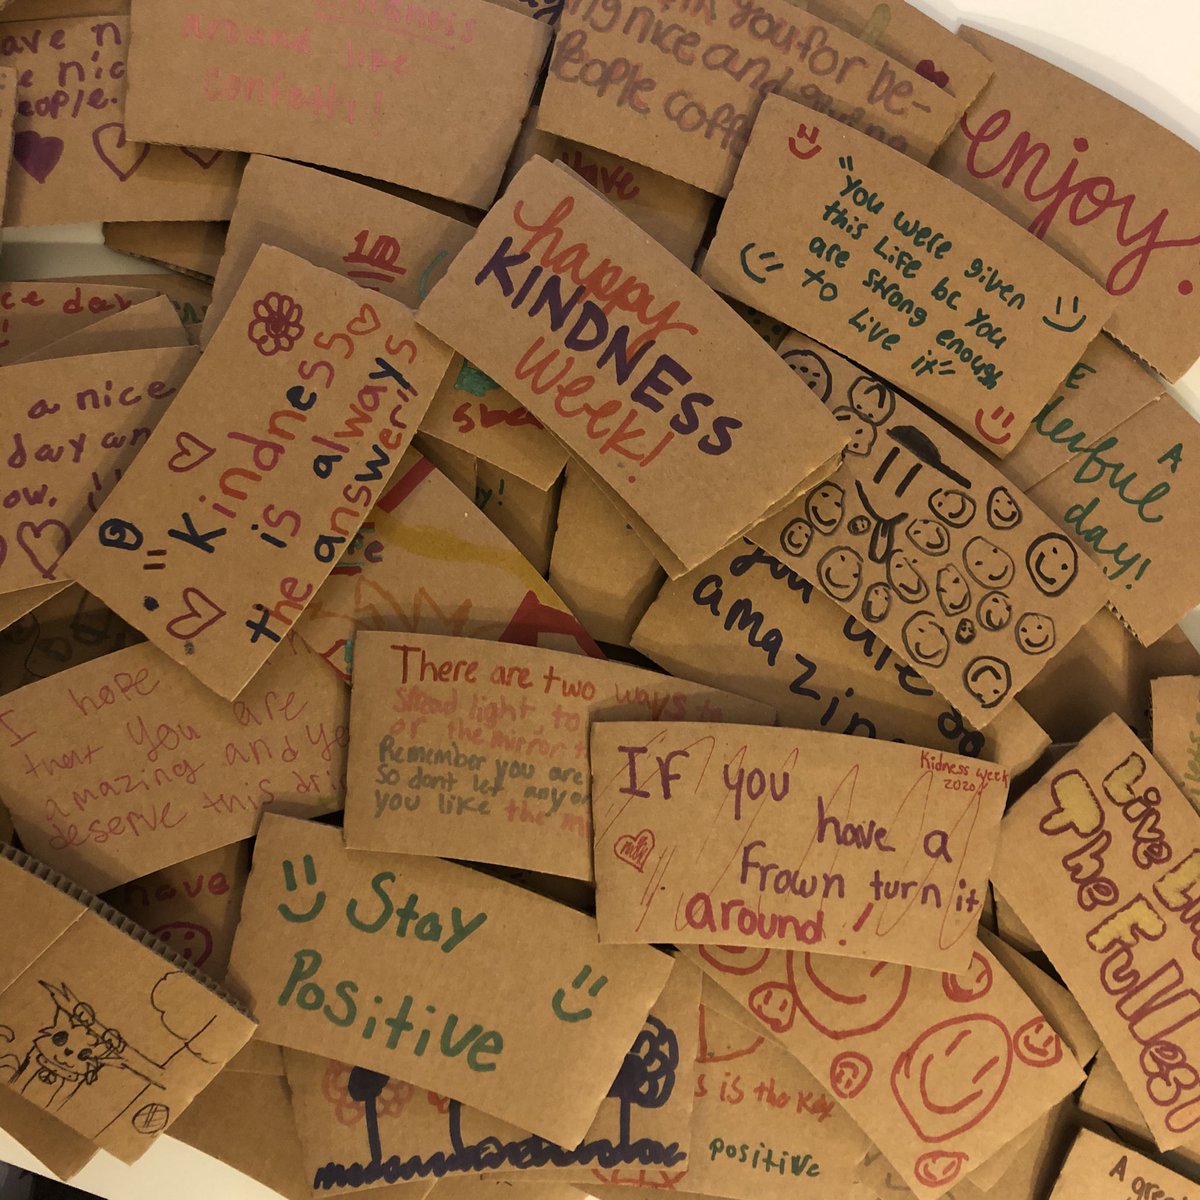 ave n
e nic
eople.
kindness
around like
confetti!
k you for be-
ng nice and
People coff
enjoy.
have
"You were given
this Life bc you
are strong enough
to Live it"
happy
KINDNESS
week!
ce day
a nice
day an
ow.
Kindness
is always
the answer!!
E
derful
day!
A
you are so
amazing
I hope
that you are
amazing and yo
deserve this dri
There are two ways to
spread light to
or the mirror t
Remember you are
So dont let anyo
you like the mi
Kidness week
2020
IF you
have a
Frown turn it
around!
Live Li
The Fullest
have
Stay
Positive
s is the key
positive
A grea